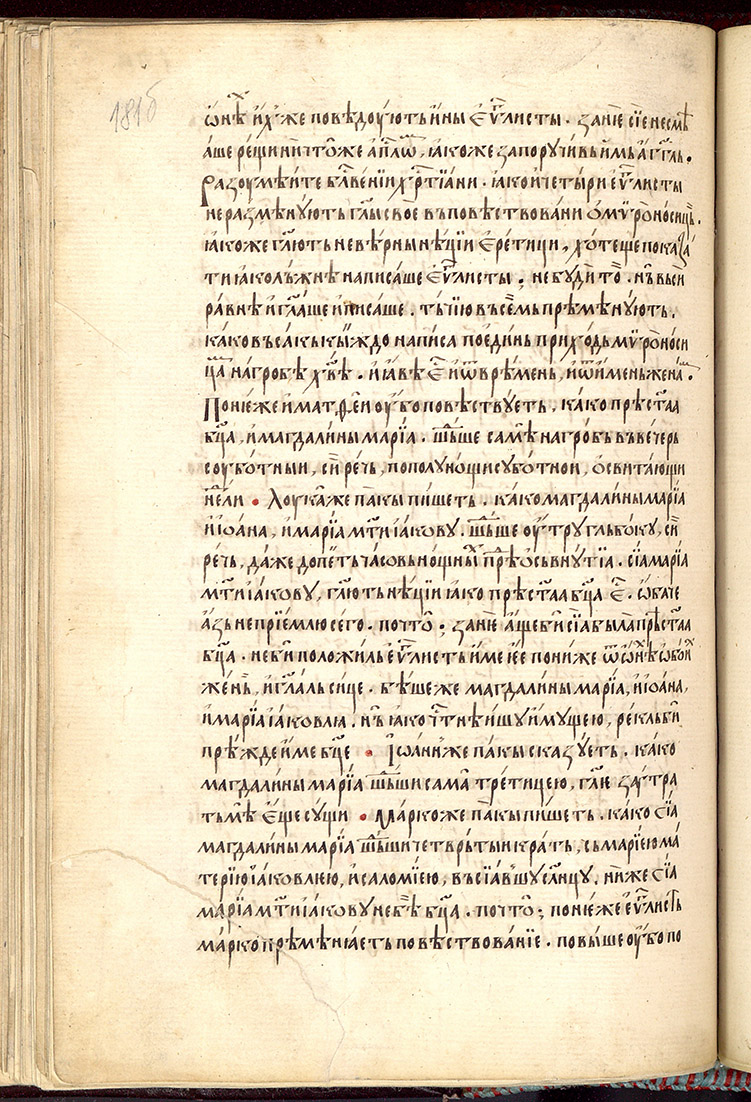 181б
ѡ҆нѣ и҆х же повѣдоуют ины є҆ѵⷢ҇листы . занѥ сїе несмѣ
аще рещи ничто́же а҆пⷭ҇лѡⷨ , ꙗ҆коже запоручивы и҆мь а҆гг҃ль .
Разоумѣите блⷭ҇вени хрⷭ҇тїани . ꙗ҆ко и҆ четыри є҆ѵⷢ҇листы
не размѣнуют глы свое въ повѣствовани ѡ мѵ̈роносиць .
ꙗ҆коже глют невѣрны нѣцїи є҆ретици , хотеще показа
ти ꙗ҆ко лъжнѣ написаше є҆ѵⷢ҇листы ; не буди то . нъ вьси
равнѣ и҆ глаше и҆ писаше . тъчїю въ семь прѣмѣнуют .
како въсакы кыиждо написа поединь приходь мѵ̈роноси
ца на гробѣ хв҃ѣ . и ꙗ҆вѣ є҆ⷭ҇ и ѿ врѣмень , и ѿ имень женаⷨ .
Понѥже и҆ матѳеи оубо повѣствуеть , како прѣстаа
бц҃а , и҆ магдалины марїа . шⷣьше самѣ на гробь въ вечерь
соуботныи , си речь , по полунощи суботнои , ѡсвитающи
не҃ли . Лоука же пакы пишеть . како магдалины марїа
и҆ іѡана , и҆ марїа мт҃и ꙗ҆кову . шⷣьше оутру глъбоку , си
речь , даже до петь часовь нощныⷯ прѣѡсвнутїа . сїа марїа
мт҃и ꙗ҆кову , глють нѣцїи ꙗ҆ко прѣстаа бц҃а є҆ⷭ҇ . ѡ҆баче
азь не прїемлю сего . почто ; занѥ аще би сїа была прѣстаа
бц҃а . не би положиль є҆ѵⷢ҇листь име ѥе пониже ѿ ѡнѣⷯ ѡбоиⷯ
жень , и҆ глаль сице . бѣше же магдалины марїа , и҆ іѡана ,
и҆ марїа ꙗ҆ковлꙗ . нъ ꙗ҆ко чтⷭ҇нѣишу имущею , рекль би
прѣжде име бц҃е . Іѡан же пакы сказуеть . како
магдалины марїа шⷣьши сама третицею , глю заутра
тьмѣ еще сущи . Марко же пакы пишеть . како сїа
магдалины марїа шⷣьши четврьтыи крать , сь марїею ма
терїю ꙗ҆ковлею , и҆ саломїею , въсїавшу слнцу . ни же сїа
марїа мт҃и ꙗ҆кову не бѣ бц҃а . почто ; понѥже є҆ѵⷢ҇листь
марко прѣмѣнꙗеть повѣствованїе . повыше оубо по